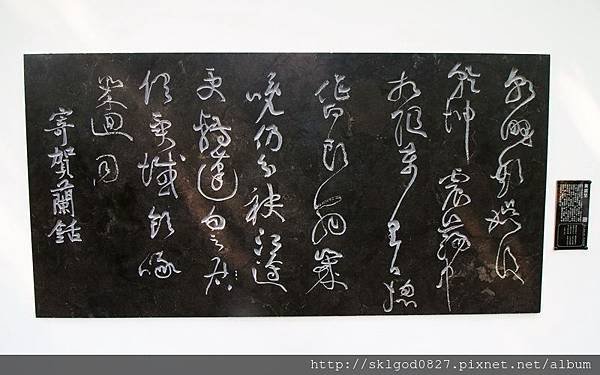 朝野歡娛後
乾坤震蕩中
相隨萬里日總
作白頭翁歲
晚仍分袂江邊
更轉蓬勿云
俱異域飲啄
幾回同
寄賀蘭銛
http://sklgod0827.pixnet.net/album